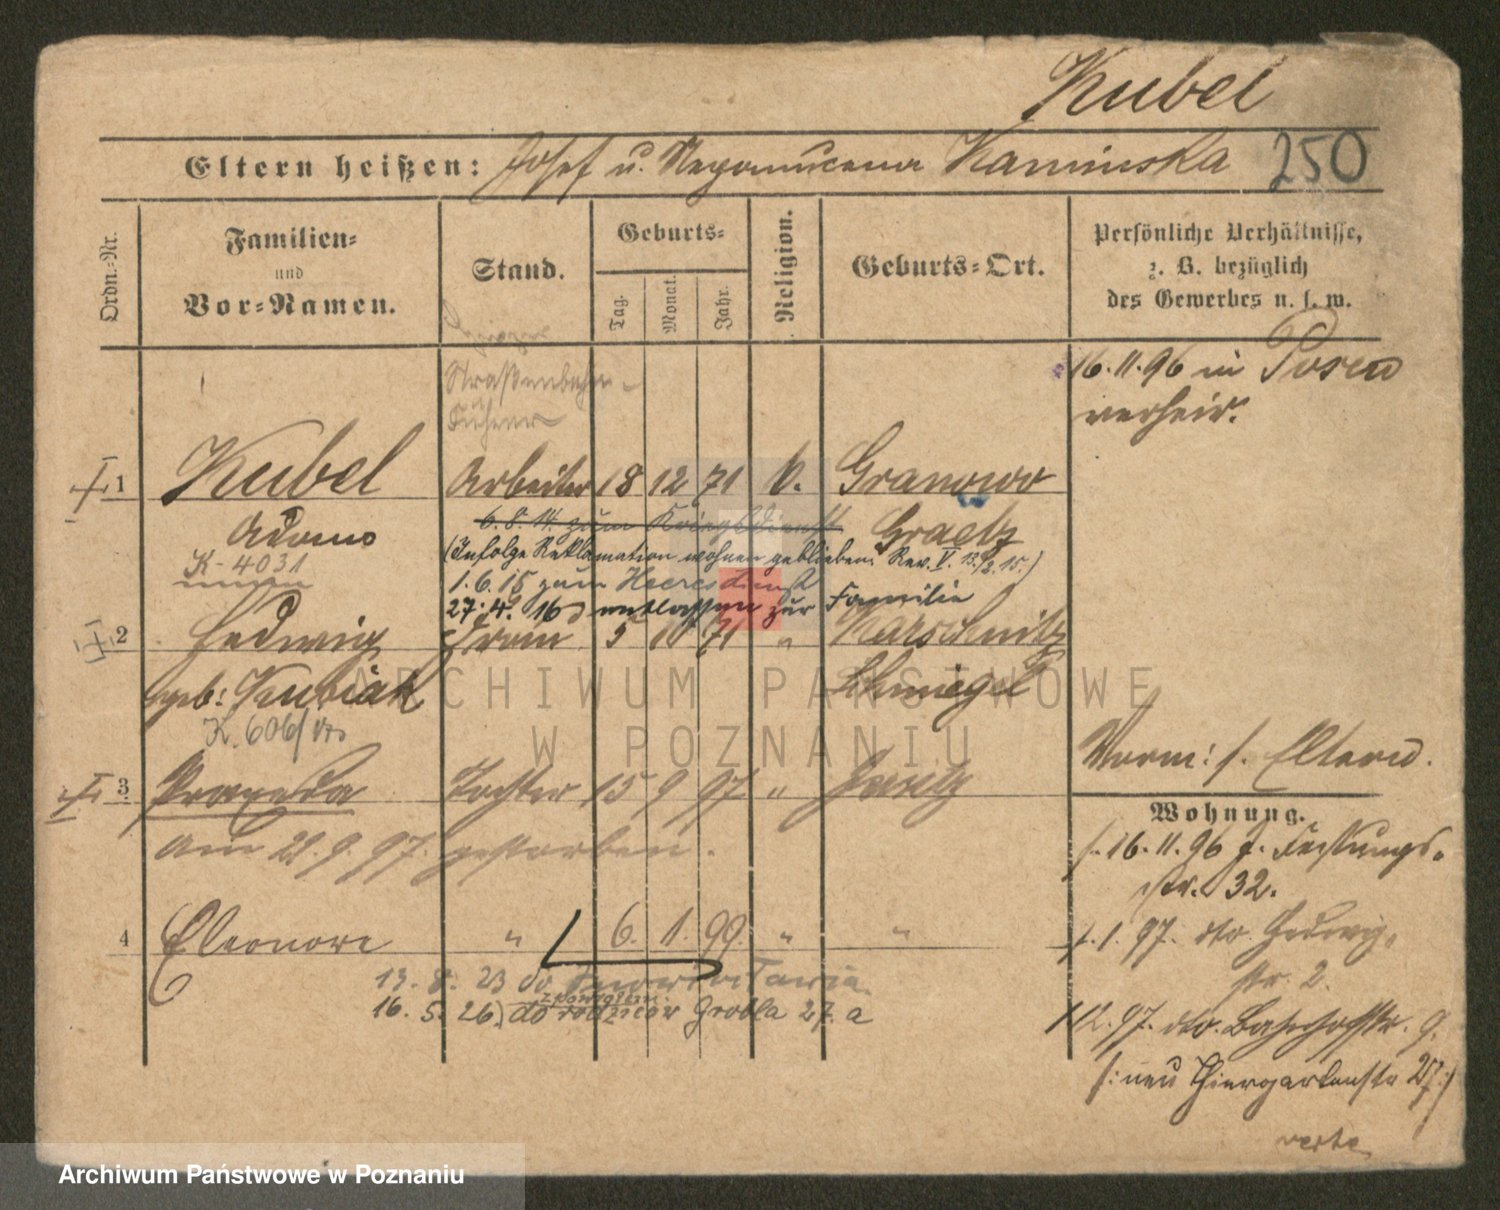 Kubel
Eltern heißen: Josef u. Nepomucena Kaminska 250
Ordn.-Nr.
Familien-
und
Vor-Namen.
Stand.
Geburts-
Tag.
Monat.
Jahr.
Religion.
Geburts-Ort.
Persönliche Verhältnisse,
z. B. bezüglich
des Gewerbes u. s. w.
Straßenbahn-
16.11.96 in Posen
verheir.
1 Kubel Arbeiter 18 12 71 k. Granowo
Adam
6.8.14. zum Kriegsdienst Graetz
K-4031
(Infolge Reklamation wohnen geblieben. Rev. V. 13./2.15.)
1.6.15 zum Heeresdienst
27.4.16 entlassen zur Familie
2 Hedwig Frau 5 10 71 "
geb: Kubiak Schmiegel
K. 606/
3 Praxeda Tochter 15 9 97 " Jersitz
am 21.9.97. gestorben.
Vorm: s. Eltern.
Wohnung.
16.11.96 J. Festungs-
str. 32.
1.1.97. dto. Hedwig-
str 2.
4 Eleonore " 6. 1. 99. " "
13. 8. 23 do
16. 5. 26. do rodziców Grobla 27. a
1.12.97. dto. Bahnhofstr. 9.
(: neu Thiergartenstr 27 :)
verte
ARCHIWUM PAŃSTWOWE
W POZNANIU
Archiwum Państwowe w Poznaniu